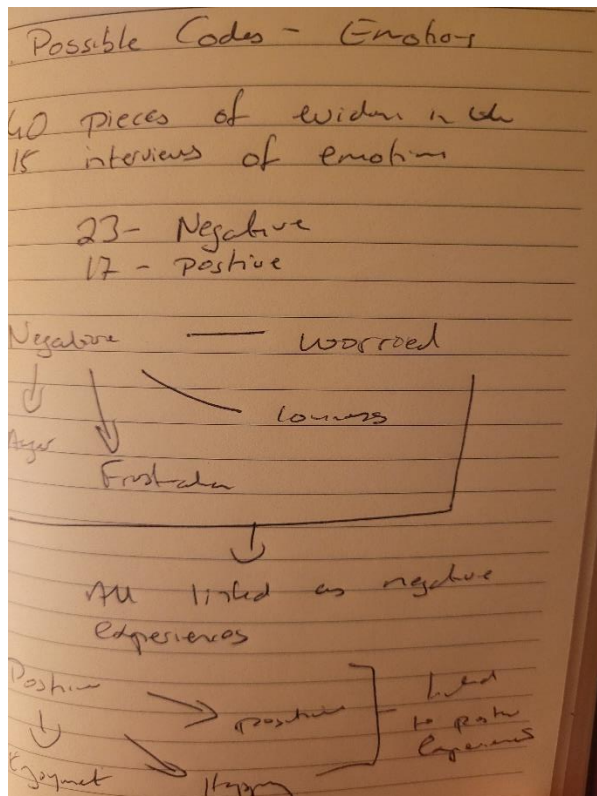 Possible Codes - Emotions
40 pieces of eviden in the
15 interviews of emotions
23- Negative
17 - Postive
Negative — worroed
lowness
Anger
Frustration
All linked as negative
experiences
Positive → positive
linked
to
experiences
Enjoyment
Happy